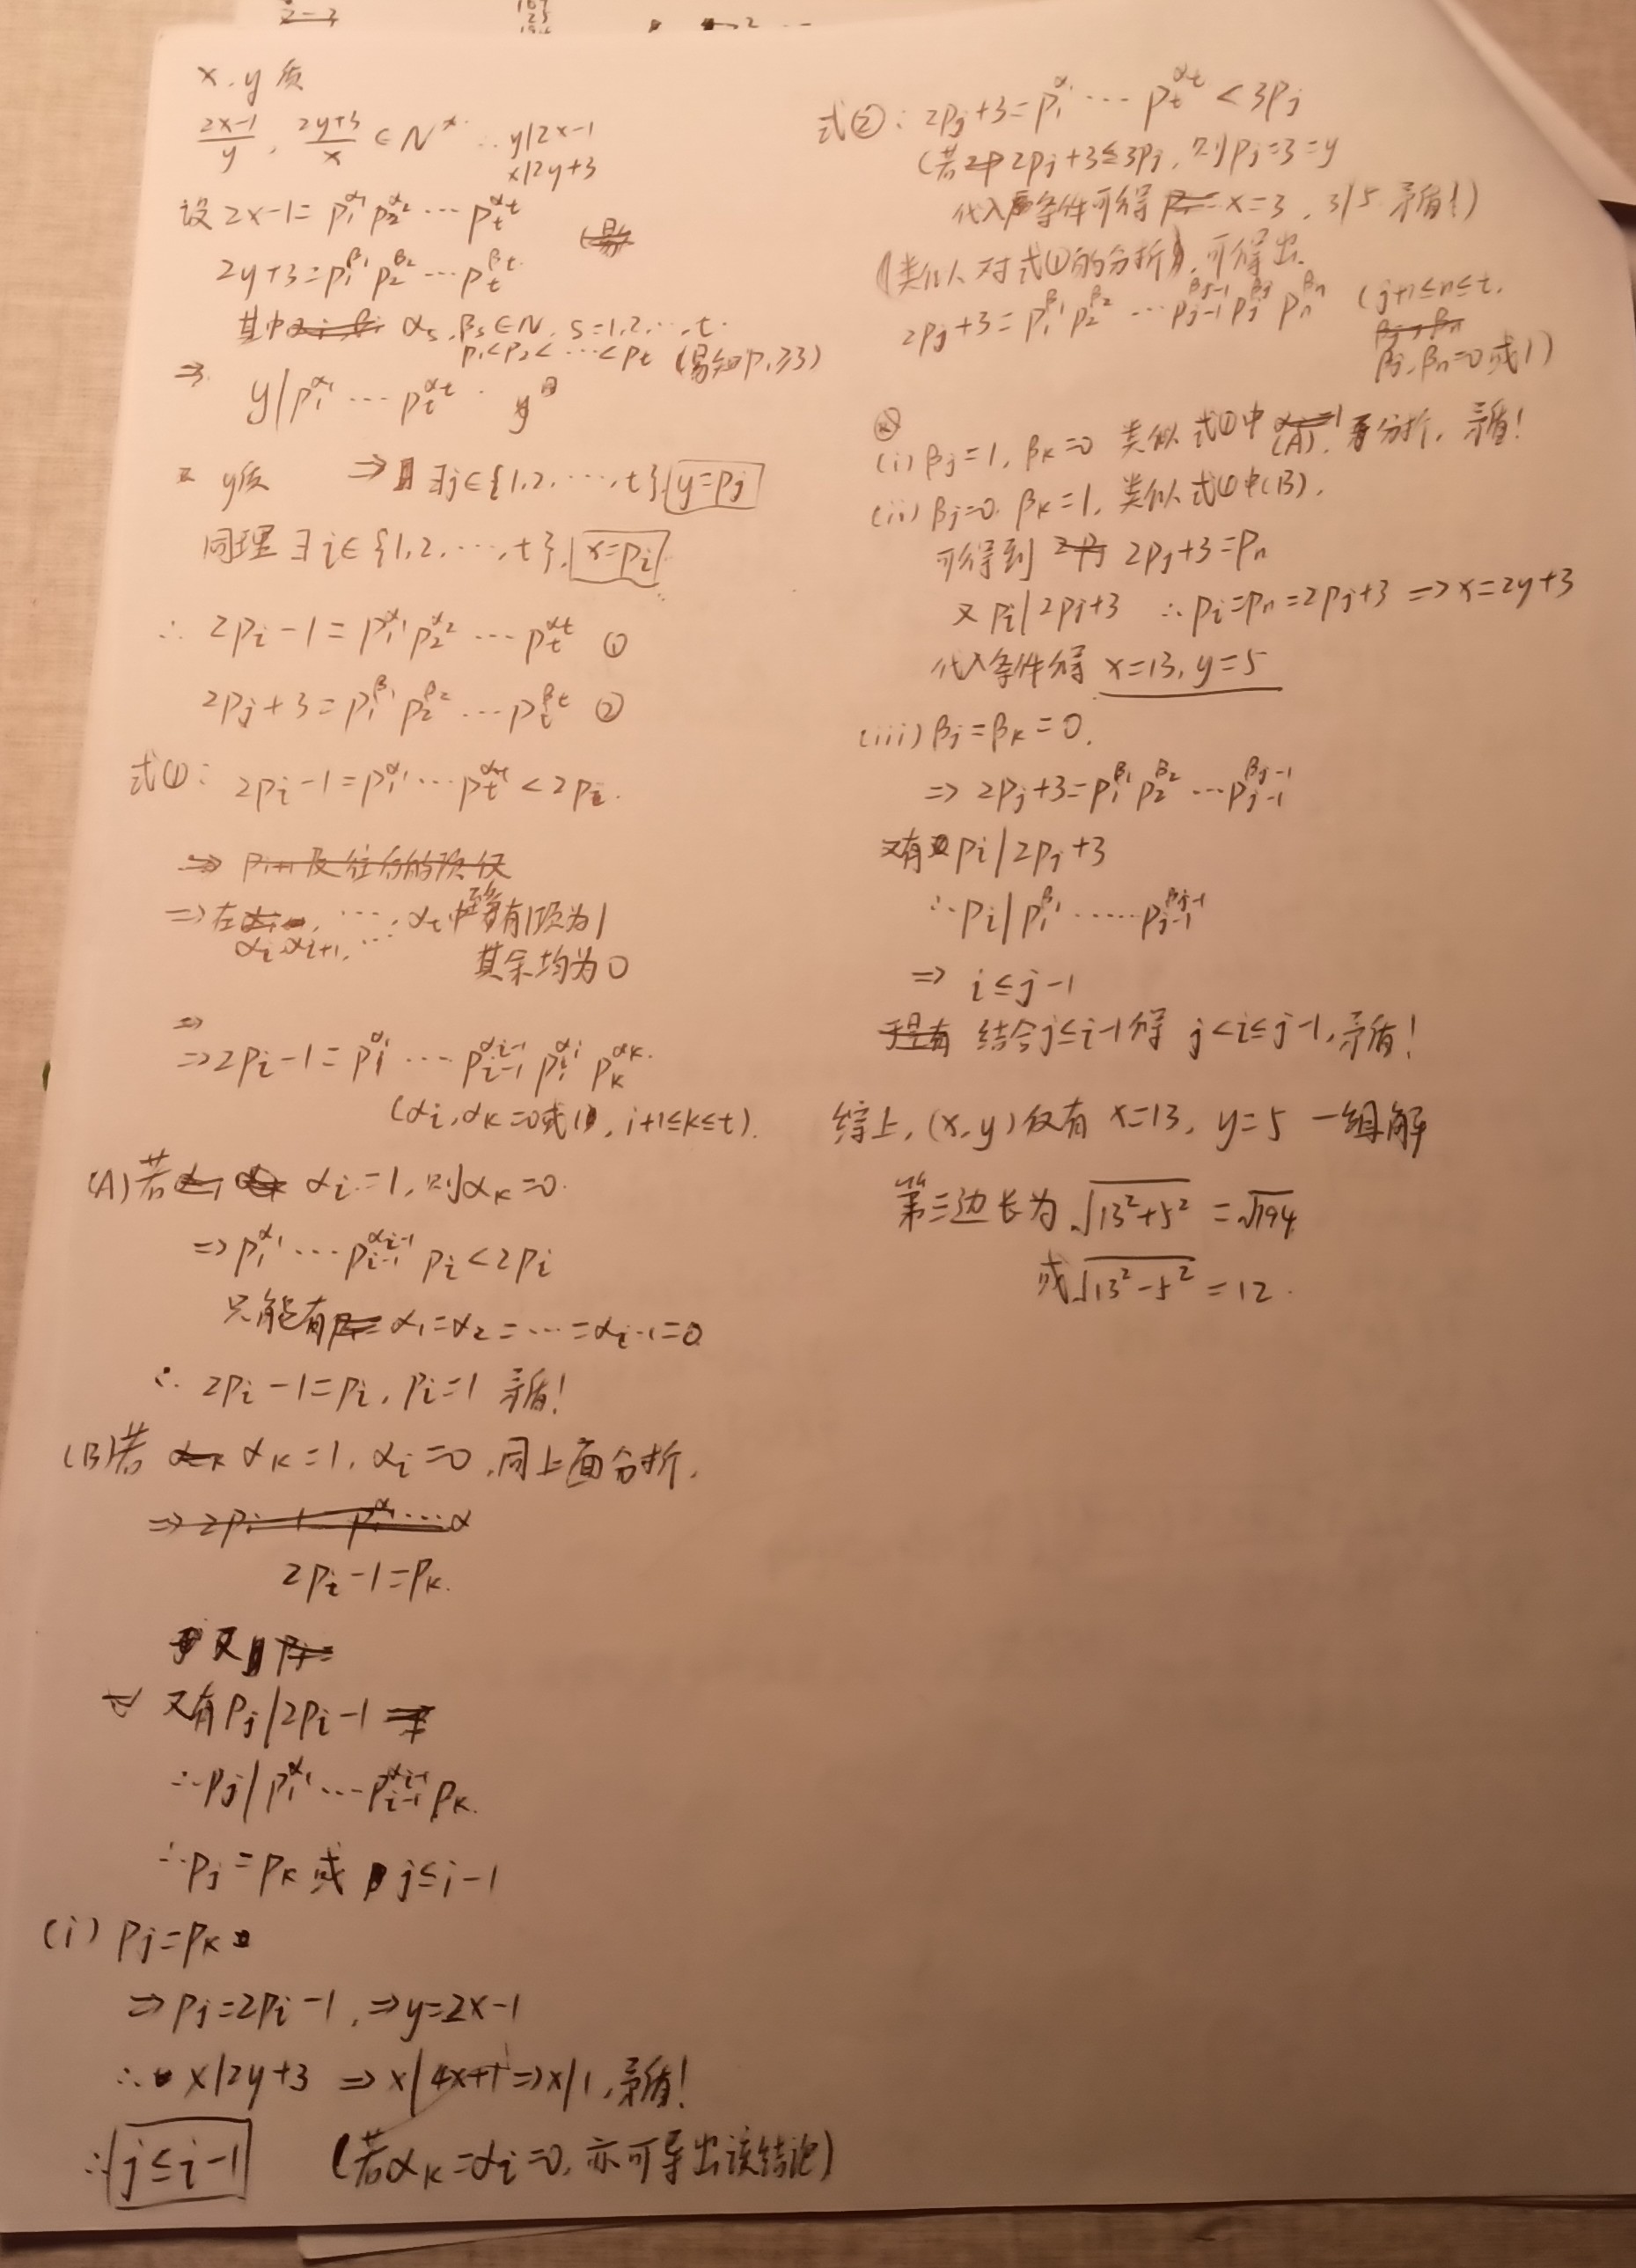 x、y 质
\frac{2x-1}{y}, \frac{2y+3}{x} ∈ N* ∴ y|2x-1
x|2y+3
设 2x-1=p_1^{α_1} p_2^{α_2} ⋯ p_t^{α_t}
2y+3=p_1^{β_1} p_2^{β_2} ⋯ p_t^{β_t}
其中 α_s, β_s∈N, s=1,2,⋯,t.
p_1<p_2<⋯<p_t (易知p_1≥3)
⇒ y|p_1^{α_1} ⋯ p_t^{α_t}
y质 ⇒ ∃j∈{1,2,⋯,t}, y=p_j
同理 ∃i∈{1,2,⋯,t}, x=p_i
∴ 2p_i-1=p_1^{α_1} p_2^{α_2} ⋯ p_t^{α_t} ①
2p_j+3=p_1^{β_1} p_2^{β_2} ⋯ p_t^{β_t} ②
式①: 2p_i-1=p_1^{α_1} ⋯ p_t^{α_t} <2p_i.
⇒ p_{i+1} 及往后的项仅
⇒ 在 α_i, α_{i+1}, ⋯, α_t 中至多有1项为1
其余均为0
⇒
⇒ 2p_i-1=p_1^{α_1} ⋯ p_{i-1}^{α_{i-1}} p_i^{α_i} p_k^{α_k}.
(α_i, α_k=0或1, i+1≤k≤t).
(A) 若 α_i=1, 则α_k=0.
⇒ p_1^{α_1} ⋯ p_{i-1}^{α_{i-1}} p_i<2p_i
只能有 α_1=α_2=⋯=α_{i-1}=0
∴ 2p_i-1=p_i, p_i=1 矛盾!
(B)若 α_k=1, α_i=0, 同上面分析,
⇒ 2p_i-1 p_1^{α_1}⋯α
2p_i-1=p_k.
又
又有 p_j|2p_i-1
∴ p_j|p_1^{α_1} ⋯ p_{i-1}^{α_{i-1}} p_k.
∴ p_j=p_k 或 j≤i-1
(i) p_j=p_k
⇒ p_j=2p_i-1, ⇒ y=2x-1
∴ x|2y+3 ⇒ x|4x+1 ⇒ x|1, 矛盾!
∴ j≤i-1 (若α_k=α_i=0, 亦可导出该结论)
式②: 2p_j+3=p_1^{α_1} ⋯ p_t^{α_t} <3p_j
(若 2p_j+3≤3p_j, 则p_j=3=y
代入原条件可得 x=3, 3|5 矛盾!)
(类似对式①的分析), 可得出
2p_j+3=p_1^{β_1} p_2^{β_2} ⋯ p_{j-1}^{β_{j-1}} p_j^{β_j} p_n^{β_n} (j+1≤n≤t,
β_j, β_n
β_j, β_n=0或1)
(i) β_j=1, β_k=0 类似式①中 (A), 分析, 矛盾!
(ii) β_j=0, β_k=1, 类似式①中(B),
可得到 2p_j+3=p_n
又 p_i|2p_j+3 ∴ p_i=p_n=2p_j+3 ⇒ x=2y+3
代入条件得 x=13, y=5
(iii) β_j=β_k=0.
⇒ 2p_j+3=p_1^{β_1} p_2^{β_2} ⋯ p_{j-1}^{β_{j-1}}
又有 p_i|2p_j+3
∴ p_i|p_1^{β_1} ⋯⋯ p_{j-1}^{β_{j-1}}
⇒ i≤j-1
结合j≤i-1得 j<i≤j-1, 矛盾!
综上, (x,y)仅有 x=13, y=5 一组解
第三边长为 \sqrt{13^2+5^2} = \sqrt{194}
或 \sqrt{13^2-5^2} =12.